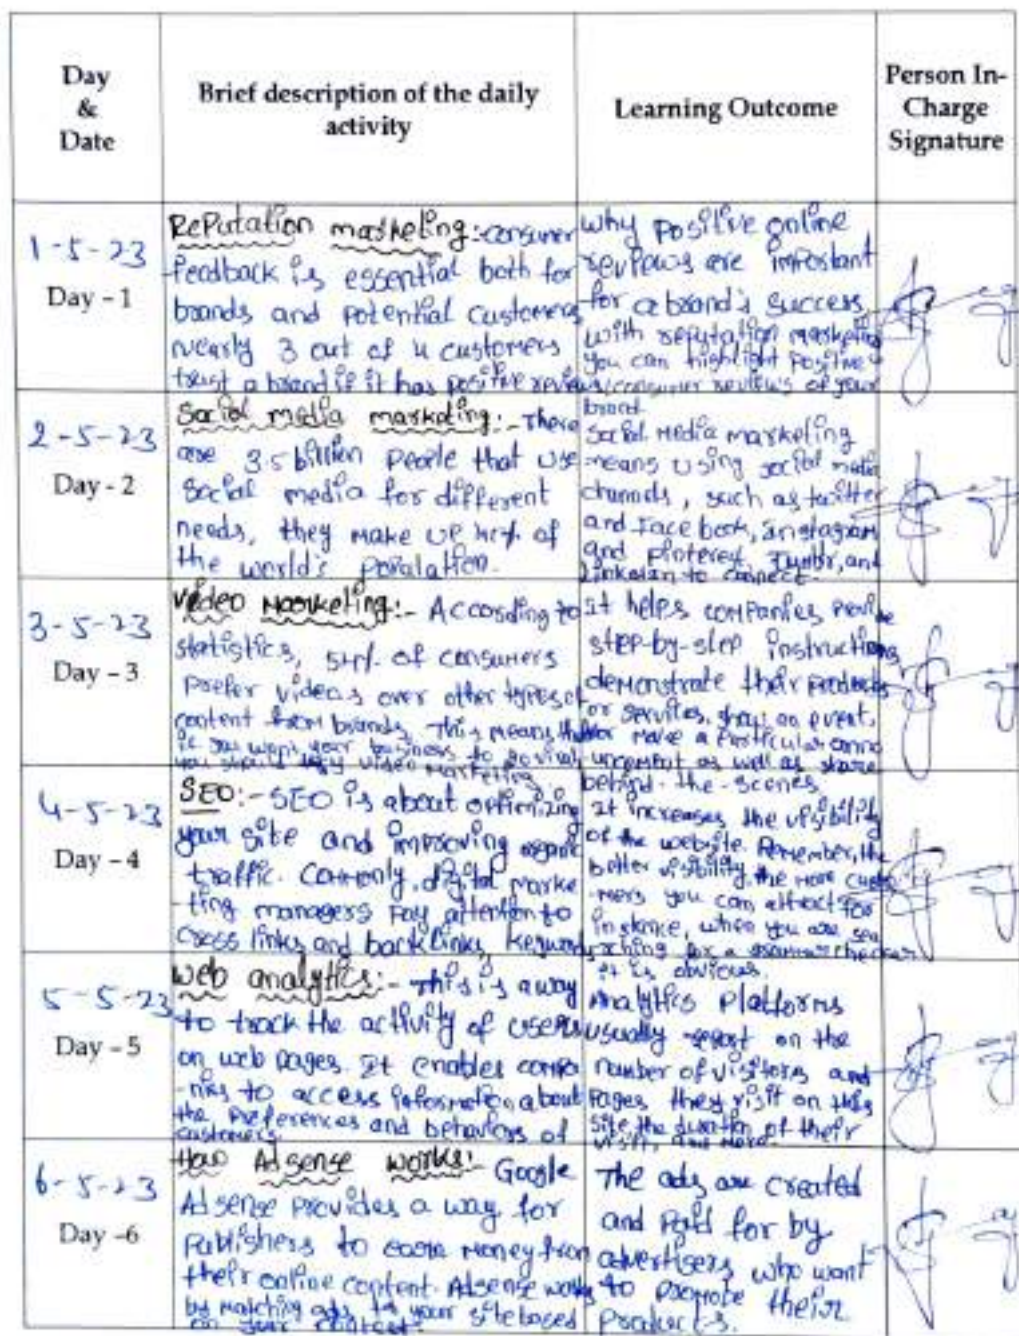 Day
&
Date
Brief description of the daily
activity
Learning Outcome
Person In-
Charge
Signature
1-5-23
Day - 1
RePutation marketing:-consumer
feedback is essential both for
brands and potential customers
nearly 3 out of 4 customers
trust a brand if it has positive reviews
why positive online
reviews are important
for a brand's success
with reputation marketing
you can highlight positive
consumer reviews of your
brand.
2-5-23
Day - 2
Social media marketing:- There
are 3.5 billion people that use
social media for different
needs, they make up of
the world's population.
Social Media marketing
means using social media
channels, such as twitter
and Facebook, Instagram
and pinterest, Tumblr, and
to connect.
3-5-23
Day - 3
Video Marketing:- According to
statistics, 54% of consumers
Prefer videos over other types of
content from brands. This means that
if you want your business to go viral,
you should try video marketing
It helps companies provide
step-by-step instructions
demonstrate their products
or services, show an event,
or make a particular anno
uncement as well as share
behind-the-scenes
4-5-23
Day - 4
SEO:- SEO is about optimizing
your site and improving organic
traffic. Commonly, digital marke
-ting managers pay attention to
cross links and backlinks, keywords
It increases the visibility
of the website. Remember, the
better visibility, the more custo
-mers you can attract for
instance, when you are sea
rching for a grammar checker
it is obvious.
5-5-23
Day - 5
web analytics:- This is a way
to track the activity of users
on web pages. It enables compa
-nies to access information about
the preferences and behaviors of
customers.
Analytics Platforms
usually report on the
number of visitors and
pages they visit on this
site, the duration of their
visit, and more.
6-5-23
Day -6
How Adsense works:- Google
Adsense provides a way for
Publishers to earn money from
their online content. Adsense works
by matching ads to your site based
on your content.
The ads are created
and paid for by
advertisers who want
to promote their
products.